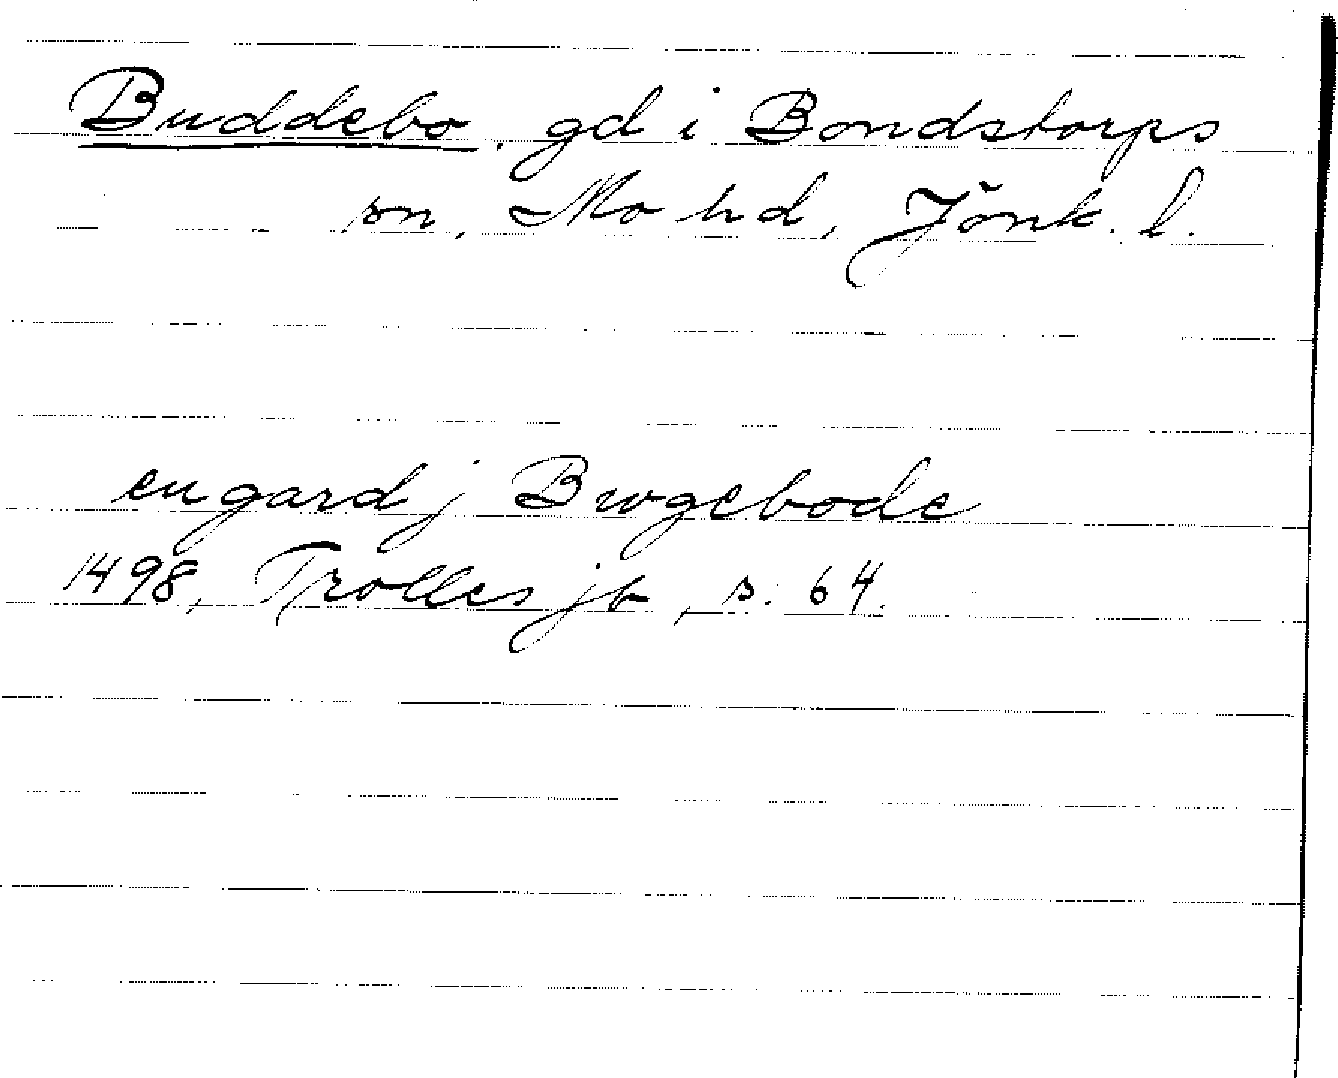 Buddebo, gd i Bondstorps
sn, Mo hd, Jönk. l.
en gard j Bwgebode
1498, Trolles jb, s. 64.